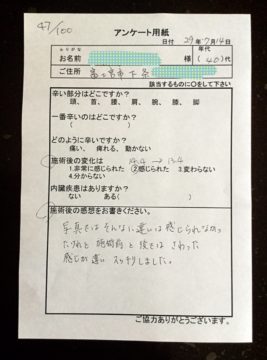 47/100
アンケート用紙
日付 29年7月14日
ふりがな
お名前 様
年代
(40)代
ご住所 富士宮市下条
該当するものに○をして下さい
辛い部分はどこですか？
頭、首、腰、肩、腕、膝、脚
一番辛いのはどこですか？
( )
どのように辛いですか？
痛い、痺れる、動かない
施術後の変化は 14.4 → 13.4
1.非常に感じられた ②感じられた 3.変わらない
4.分からない
内臓疾患はありますか？
ない ある( )
施術後の感想をお書きください。
写真をはそんなに違いは感じられなかっ
たけれど 施術前と後をは さわった
感じが違い スッキリしました。
ご協力ありがとうございます。